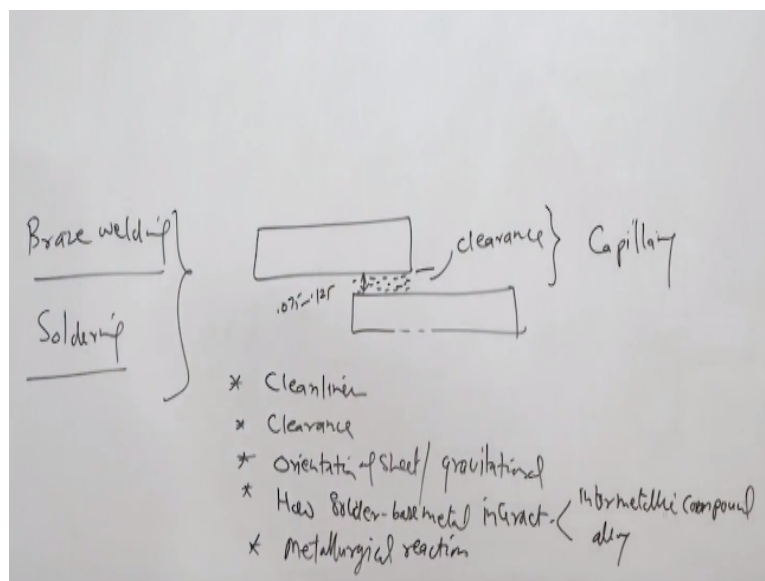 Braze welding
Soldering
clearance
Capillary
.075-.125
* Cleanliness
* Clearance
* Orientation of sheet / gravitational
* How solder-base metal interact
intermetallic compound
alloy
* Metallurgical reaction